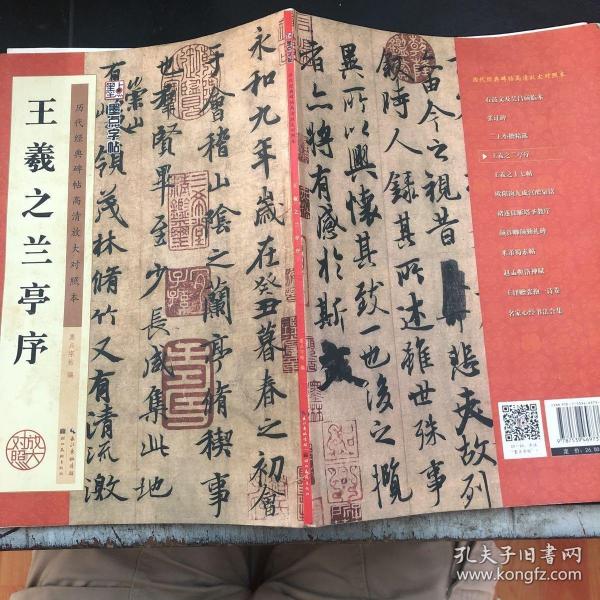 历代经典碑帖高清放大对照本
王羲之兰亭序
墨点字帖 编
放大
对照
长江出版传媒
湖北美术出版社
墨点字帖
永和九年歲在癸丑暮春之初會
于會稽山陰之蘭亭脩禊事
也羣賢畢至少長咸集此地
有崇山
領茂林脩竹又有清流激
當今之視昔
悲夫故列
敘時人錄其所述雖世殊事
異所以興懷其致一也後之攬
者亦將有感於斯
历代经典碑帖高清放大对照本
张迁碑
王羲之兰亭序
王羲之十七帖
欧阳询九成宫醴泉铭
褚遂良雁塔圣教序
颜真卿颜勤礼碑
米芾蜀素帖
赵孟頫洛神赋
名家心经书法合集
定价：26.00
孔夫子旧书网
www.kongfz.com